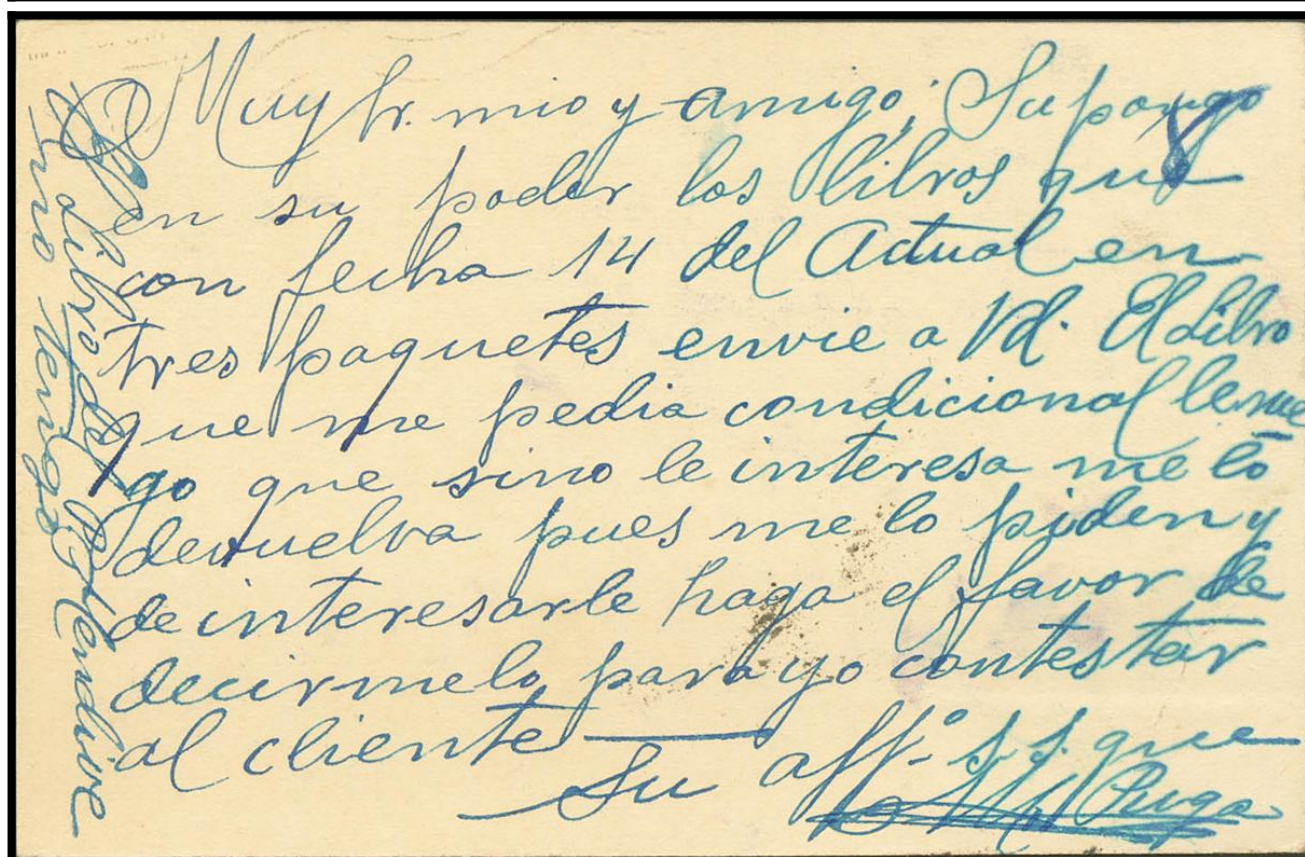 Muy Sr. mio y amigo; Supongo
en su poder los libros que
con fecha 14 del Actual en
tres paquetes envie a Vd. El libro
que me pedia condicional le rue
go que sino le interesa me lo
devuelva pues me lo piden y
de interesarle haga el favor de
decirmelo para yo contestar
al cliente
Su aff.º s.s. que
Puga
El libro del P. Mendive
no tengo